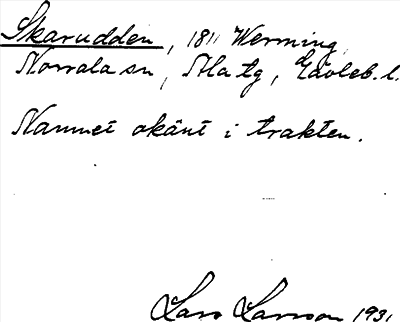 Skarudden, 1811 Werming
Norrala sn, Ala tg, Gävleb. l.
Namnet okänt i trakten.
Lars Larsson 1931